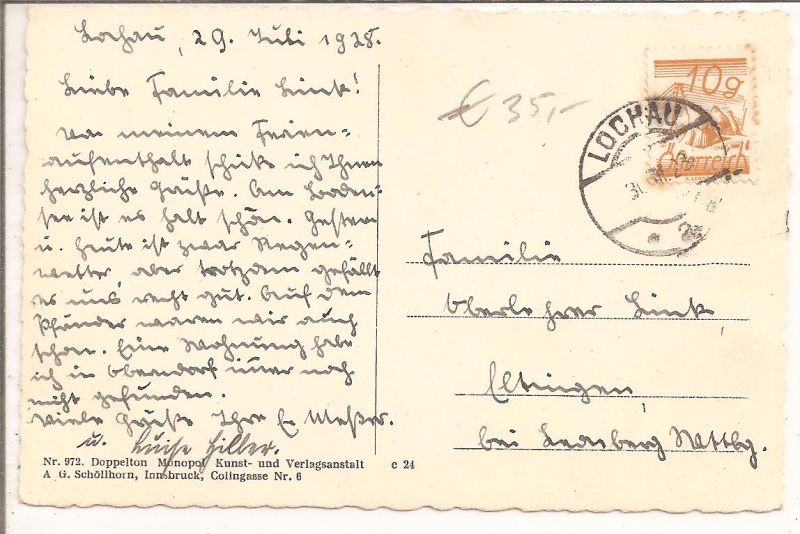 Lochau, 29. Juli 1928.
Liebe Familie Link!
Von meinem Ferien-
aufenthalt schicke ich Ihnen
herzliche Grüße. Am Boden-
see ist es halt schön. Gestern
u. heute ist zwar Regen-
wetter, aber trotzdem gefällt
es uns recht gut. Auf dem
Pfänder waren wir auch
schon. Eine Wohnung habe
ich in Oberndorf immer noch
nicht gefunden.
Viele Grüße Ihre E. Meßer.
u. Luise Hiller.
Nr. 972. Doppelton Monopol Kunst- und Verlagsanstalt c 24
A. G. Schöllhorn, Innsbruck, Colingasse Nr. 6
€ 35,-
10g
Österreich
LOCHAU
Familie
Oberlehrer Link
Eltingen
bei Leonberg Wttbg.